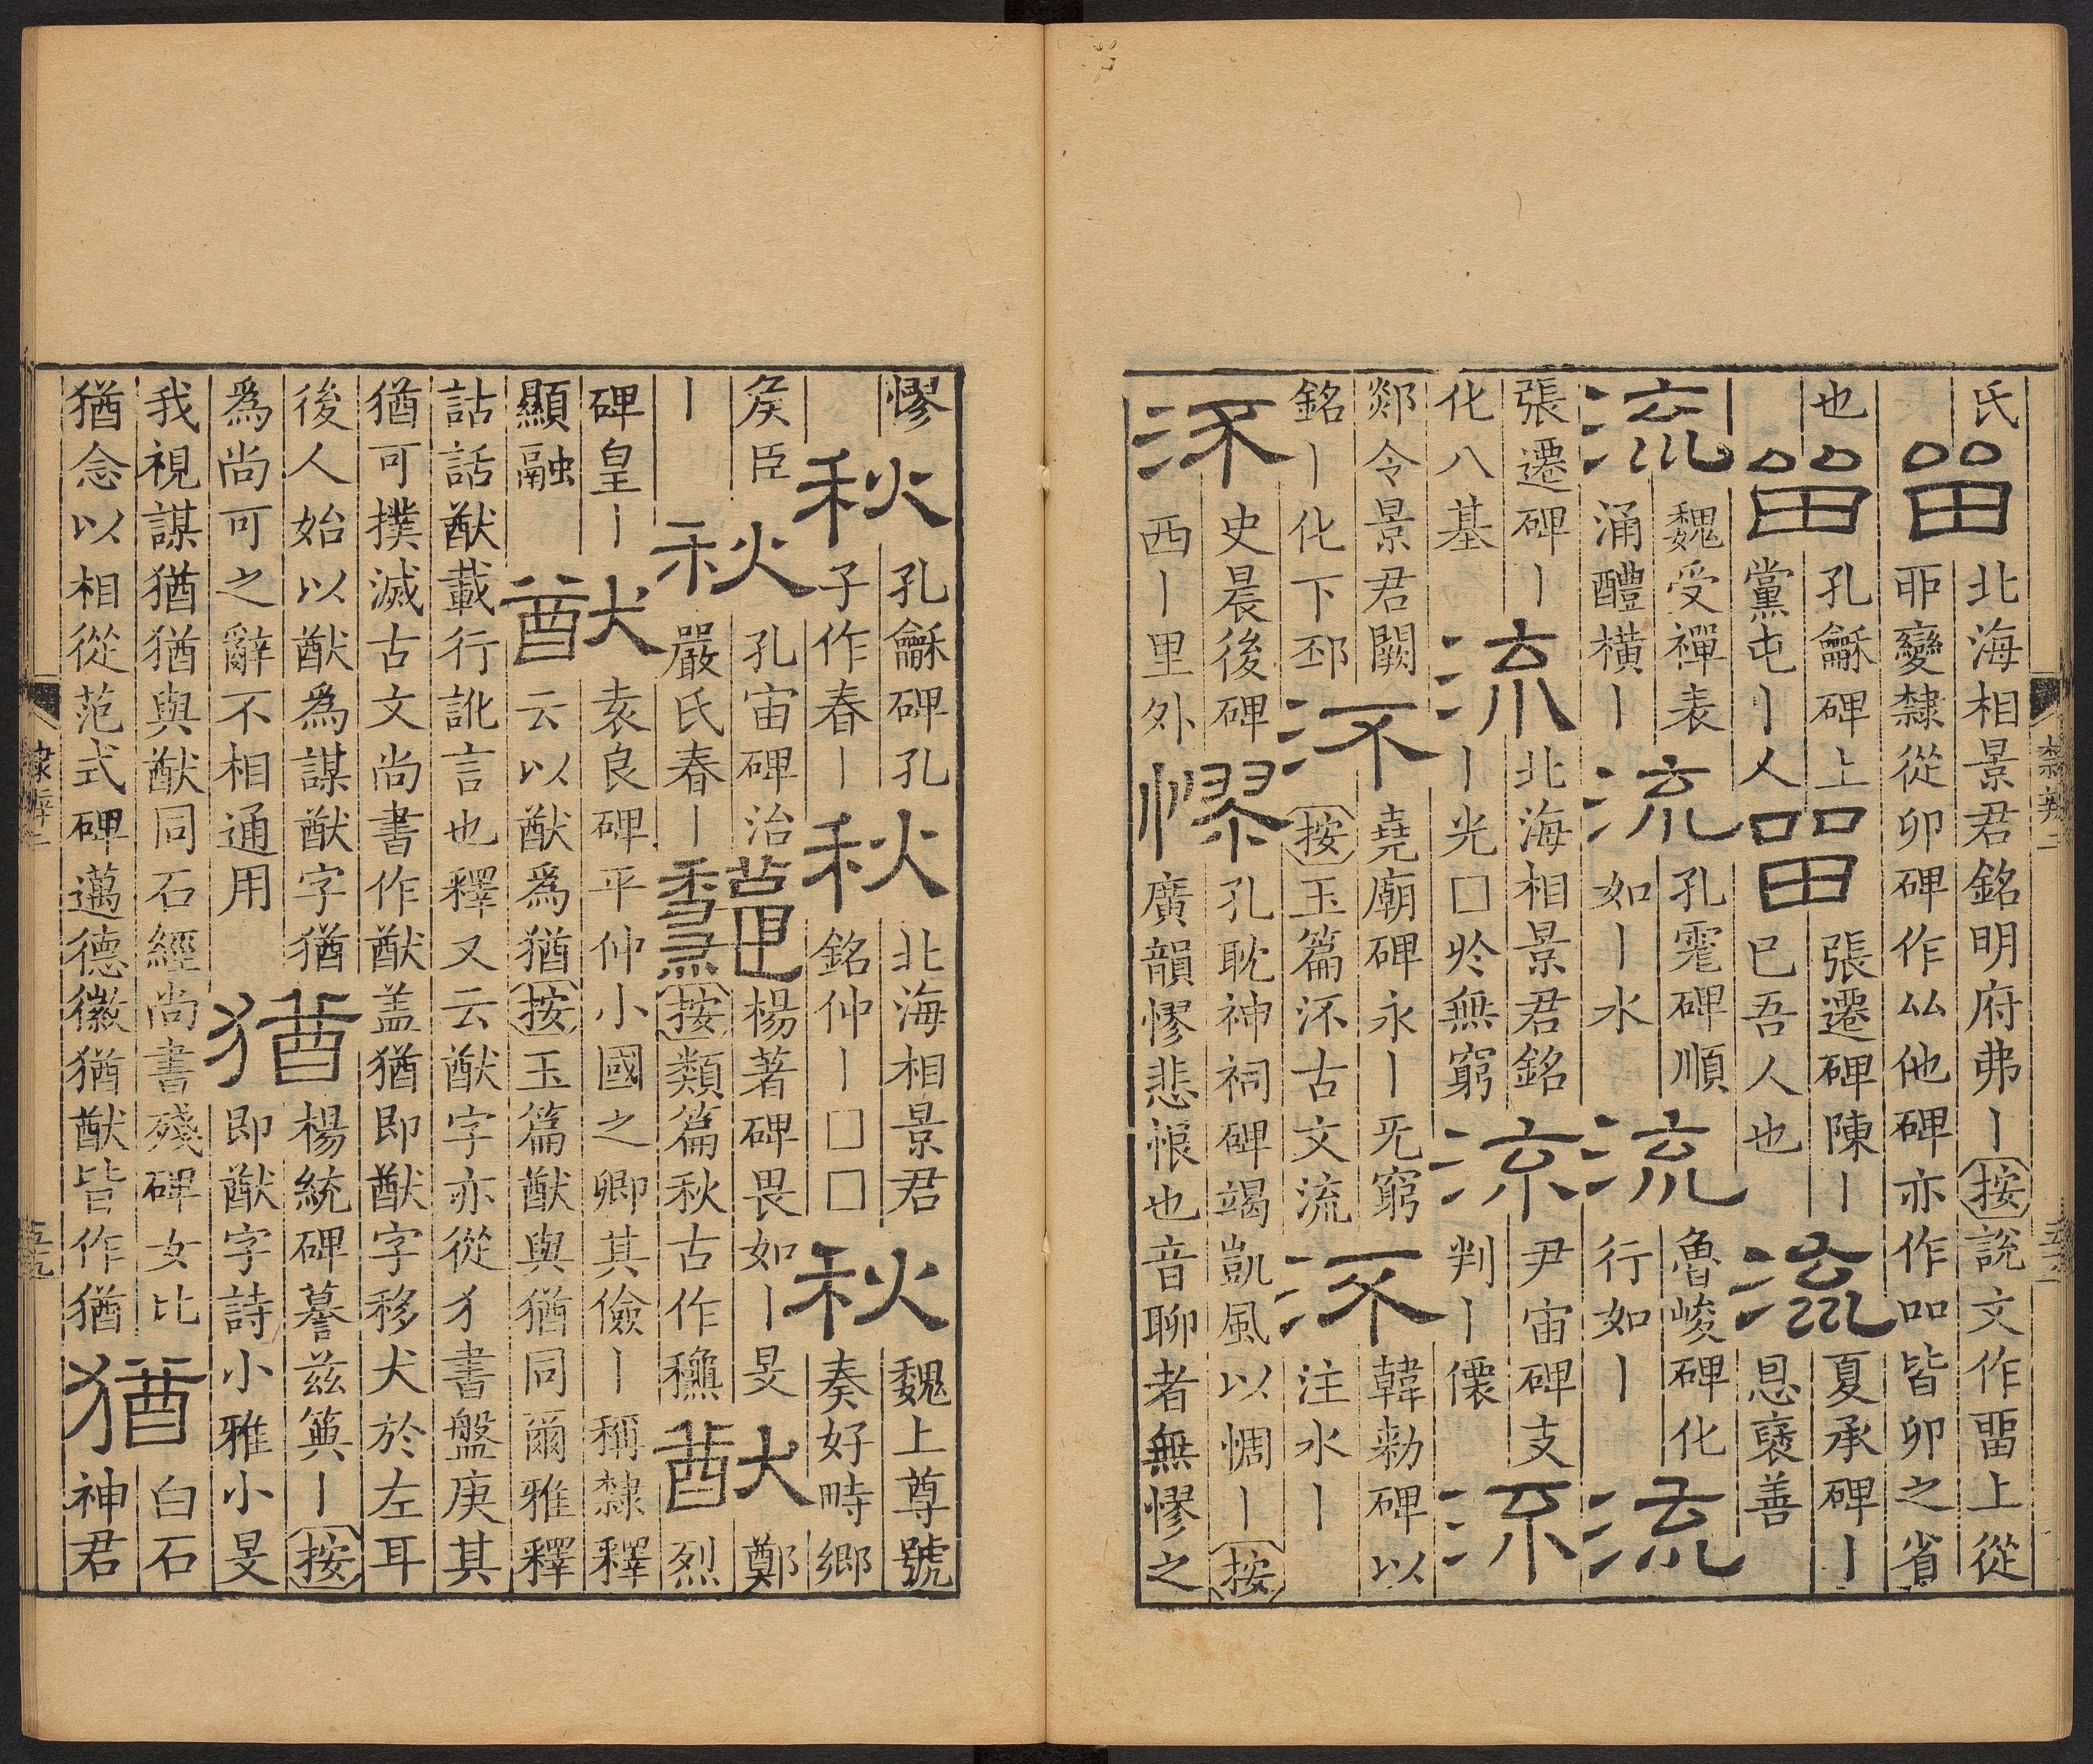 氏
畱
北海相景君銘明府弗丨按說文作畱上從
丣變隸從卯碑作厸他碑亦作吅皆卯之省
也
畱
孔龢碑上
黨屯丨人
畱
張遷碑陳丨
已吾人也
流
夏承碑丨
恩褒善
流
魏受禪表
涌醴橫丨
流
孔宙碑順
如丨水
流
魯峻碑化
行如丨
流
張遷碑丨
化八基
流
北海相景君銘
丨光□於無窮
流
尹宙碑支
判丨僊
流
郯令景君闕
銘丨化下邳
沠
堯廟碑永丨旡窮
按玉篇沠古文流
沠
韓勑碑以
注水丨
沠
史晨後碑
西丨里外
憀
孔耽神祠碑竭凱風以惆丨按
廣韻憀悲恨也音聊者無憀之
隸辨二
憀
秋
孔龢碑孔
子作春丨
秋
北海相景君
銘仲丨□□
秋
魏上尊號
奏好畤鄉
矦臣
丨
秋
孔宙碑治
嚴氏春丨
龝
楊著碑畏如丨旻
按類篇秋古作龝
猷
鄭
烈
碑皇丨
顯融
猷
袁良碑平仲小國之卿其儉丨稱隸釋
云以猷爲猶按玉篇猷與猶同爾雅釋
詁話猷載行訛言也釋又云猷字亦從犭書盤庚其
猶可撲滅古文尚書作猷盖猶即猷字移犬於左耳
後人始以猷爲謀猷字猶
爲尚可之辭不相通用
猶
楊統碑謩兹英丨按
即猷字詩小雅小旻
我視謀猶猶與猷同石經尚書殘碑女比
猶念以相從范式碑邁德徽猶猷皆作猶
猶
白石
神君
隸辨二
五九